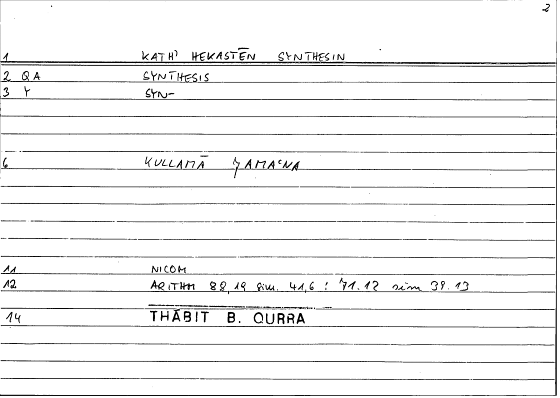 2
1 KATH' HEKASTĒN SYNTHESIN
2 QA SYNTHESIS
3 Y SYN-
6 KULLAMĀ ǦAMAʿNA
11 NICOM
12 ARITHM 82,19 sim. 41,6 : 71.12 sim 39.13
14 THĀBIT B. QURRA